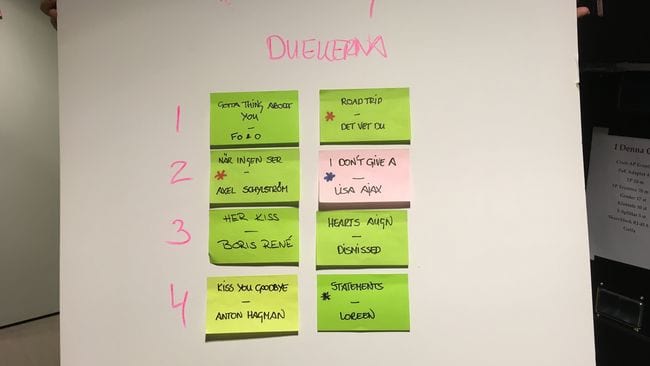 DUELLERNA
1
GOTTA THING ABOUT
YOU
—
FO & O
ROADTRIP
—
* DET VET DU
2
NÄR INGEN SER
* —
AXEL SCHYLSTRÖM
I DON'T GIVE A
* —
LISA AJAX
3
HER KISS
—
BORIS RENÉ
HEARTS ALIGN
—
DISMISSED
4
KISS YOU GOODBYE
—
ANTON HAGMAN
STATEMENTS
* —
LOREEN
I Denna